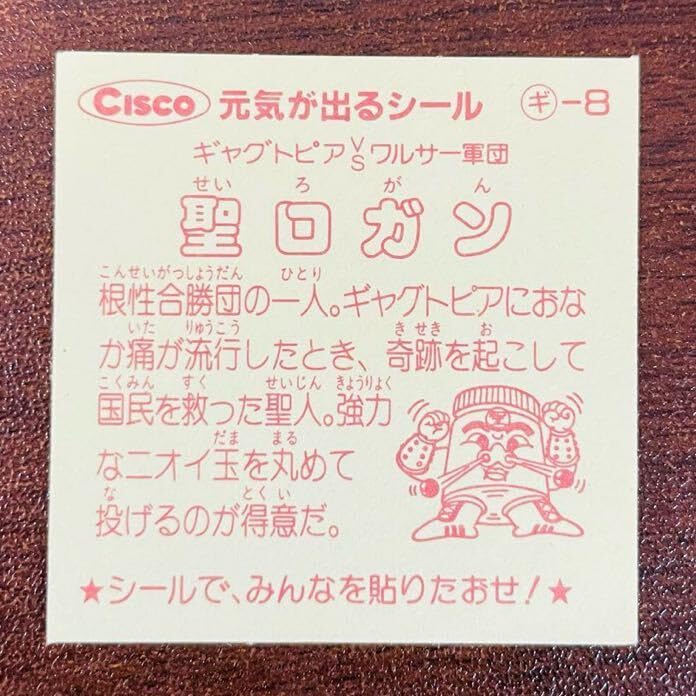 Cisco 元気が出るシール ㋖゙-8
ギャグトピアVSワルサー軍団
せいろがん
聖ロガン
こんせいがっしょうだん ひとり
根性合勝団の一人。ギャグトピアにおな
いた りゅうこう きせき お
か痛が流行したとき、奇跡を起こして
こくみん すく せいじん きょうりょく
国民を救った聖人。強力
だま まる
なニオイ玉を丸めて
な とくい
投げるのが得意だ。
★シールで、みんなを貼りたおせ!★